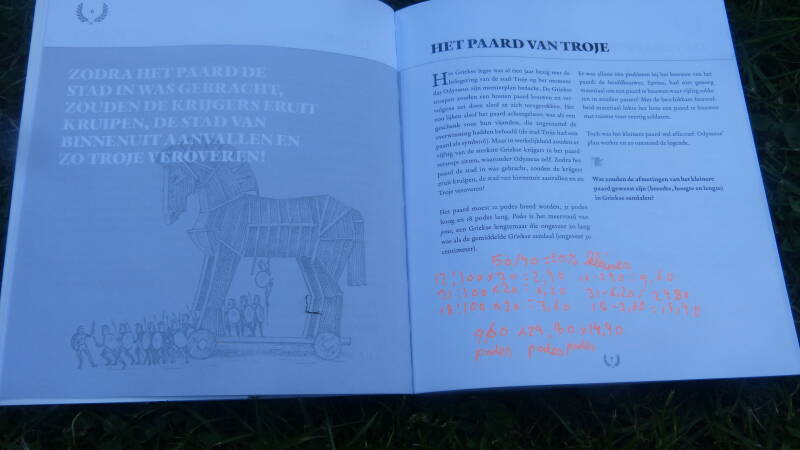 ZODRA HET PAARD DE
STAD IN WAS GEBRACHT,
ZOUDEN DE KRIJGERS ERUIT
KRUIPEN, DE STAD VAN
BINNENUIT AANVALLEN EN
ZO TROJE VEROVEREN!
HET PAARD VAN TROJE
Het Griekse leger was al tien jaar bezig met de
belegering van de stad Troje op het moment
dat Odysseus zijn meesterplan bedacht. De Griekse
troepen zouden een houten paard bouwen en ver-
volgens net doen alsof ze zich terugtrokken. Het
zou lijken alsof het paard achtergelaten was als een
geschenk voor hun vijanden, die zogenaamd de
overwinning hadden behaald (de stad Troje had een
paard als symbool). Maar in werkelijkheid zouden er
vijftig van de sterkste Griekse krijgers in het paard
verstopt zitten, waaronder Odysseus zelf. Zodra het
paard de stad in was gebracht, zouden de krijgers
eruit kruipen, de stad van binnenuit aanvallen en zo
Troje veroveren!
Het paard moest 12 podes breed worden, 31 podes
hoog en 18 podes lang. Podes is het meervoud van
pous, een Griekse lengtemaat die ongeveer zo lang
was als de gemiddelde Griekse sandaal (ongeveer 30
centimeter).
Er was alleen één probleem bij het bouwen van het
paard: de hoofdbouwer, Epeius, had niet genoeg
materiaal om een paard te bouwen waar vijftig solda-
ten in zouden passen! Met de beschikbare hoeveel-
heid materiaal lukte het hem een paard te bouwen
met ruimte voor veertig soldaten.
Toch was het kleinere paard wel effectief: Odysseus'
plan werkte en zo ontstond de legende.
Wat zouden de afmetingen van het kleinere
paard geweest zijn (breedte, hoogte en lengte)
in Griekse sandalen?
50/40 = 20% kleiner
12:100 x 20 = 2,40 12-2,40 = 9,60
31:100 x 20 = 6,20 31-6,20 = 24,80
18:100 x 20 = 3,60
podes podes podes
7